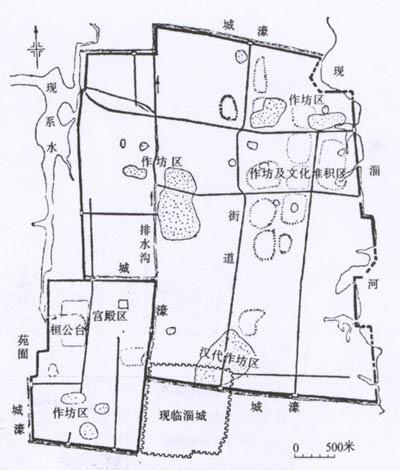 城 濠
现
系
水
现
淄
河
作坊区
作坊区
作坊及文化堆积区
街
道
排
水
沟
城
濠
宫殿区
桓公台
苑
囿
汉代作坊区
作坊区
城
濠
现临淄城
城 濠
0 500米